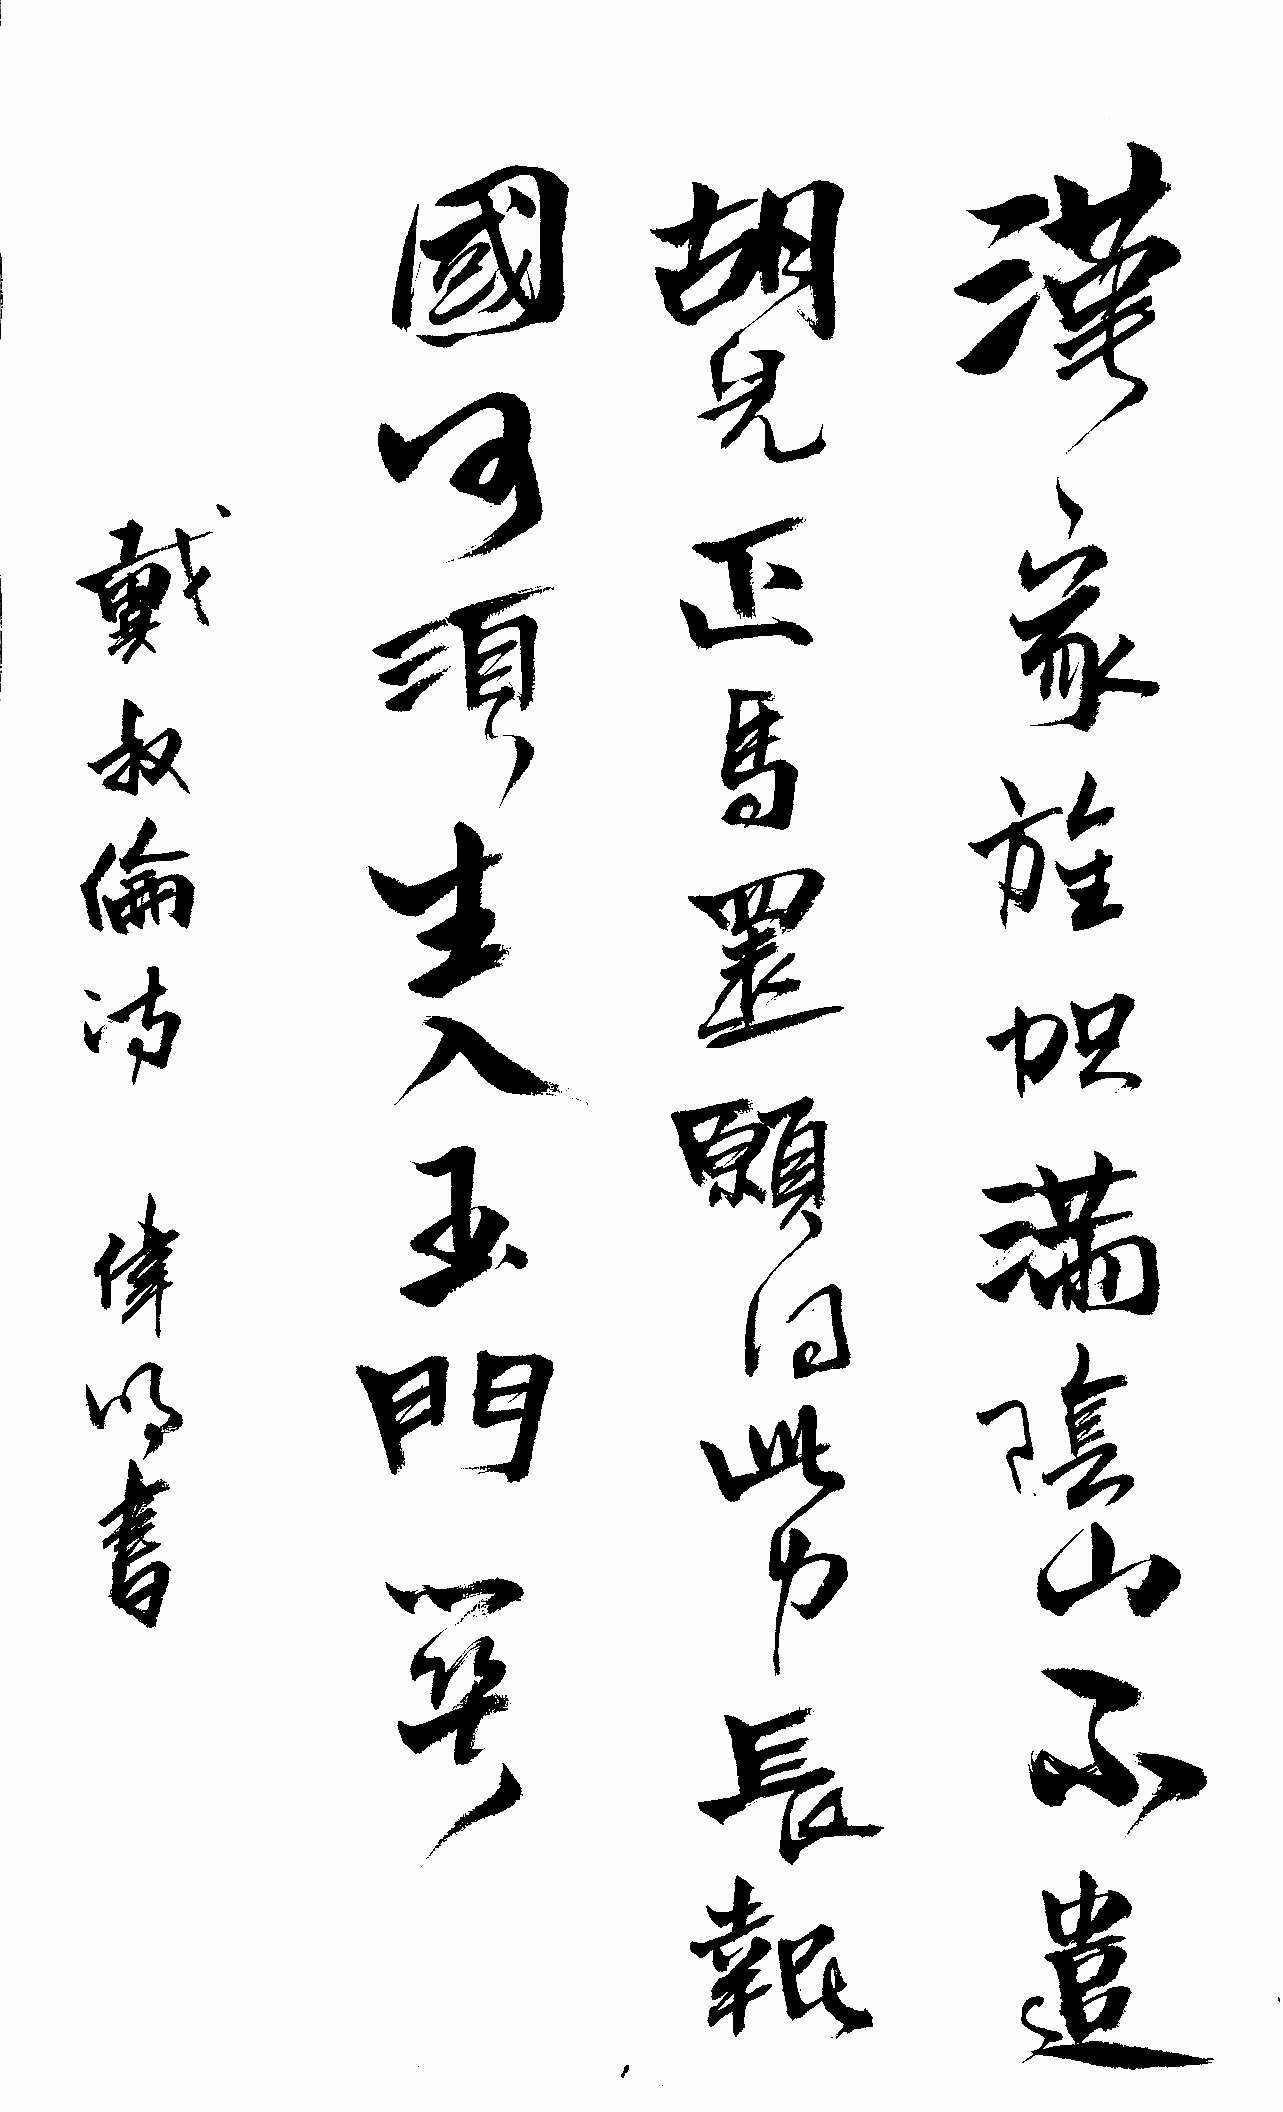 漢家旌幟滿陰山不遣
胡兒匹馬還願得此身長報
國何須生入玉門關
戴叔倫詩 偉明書